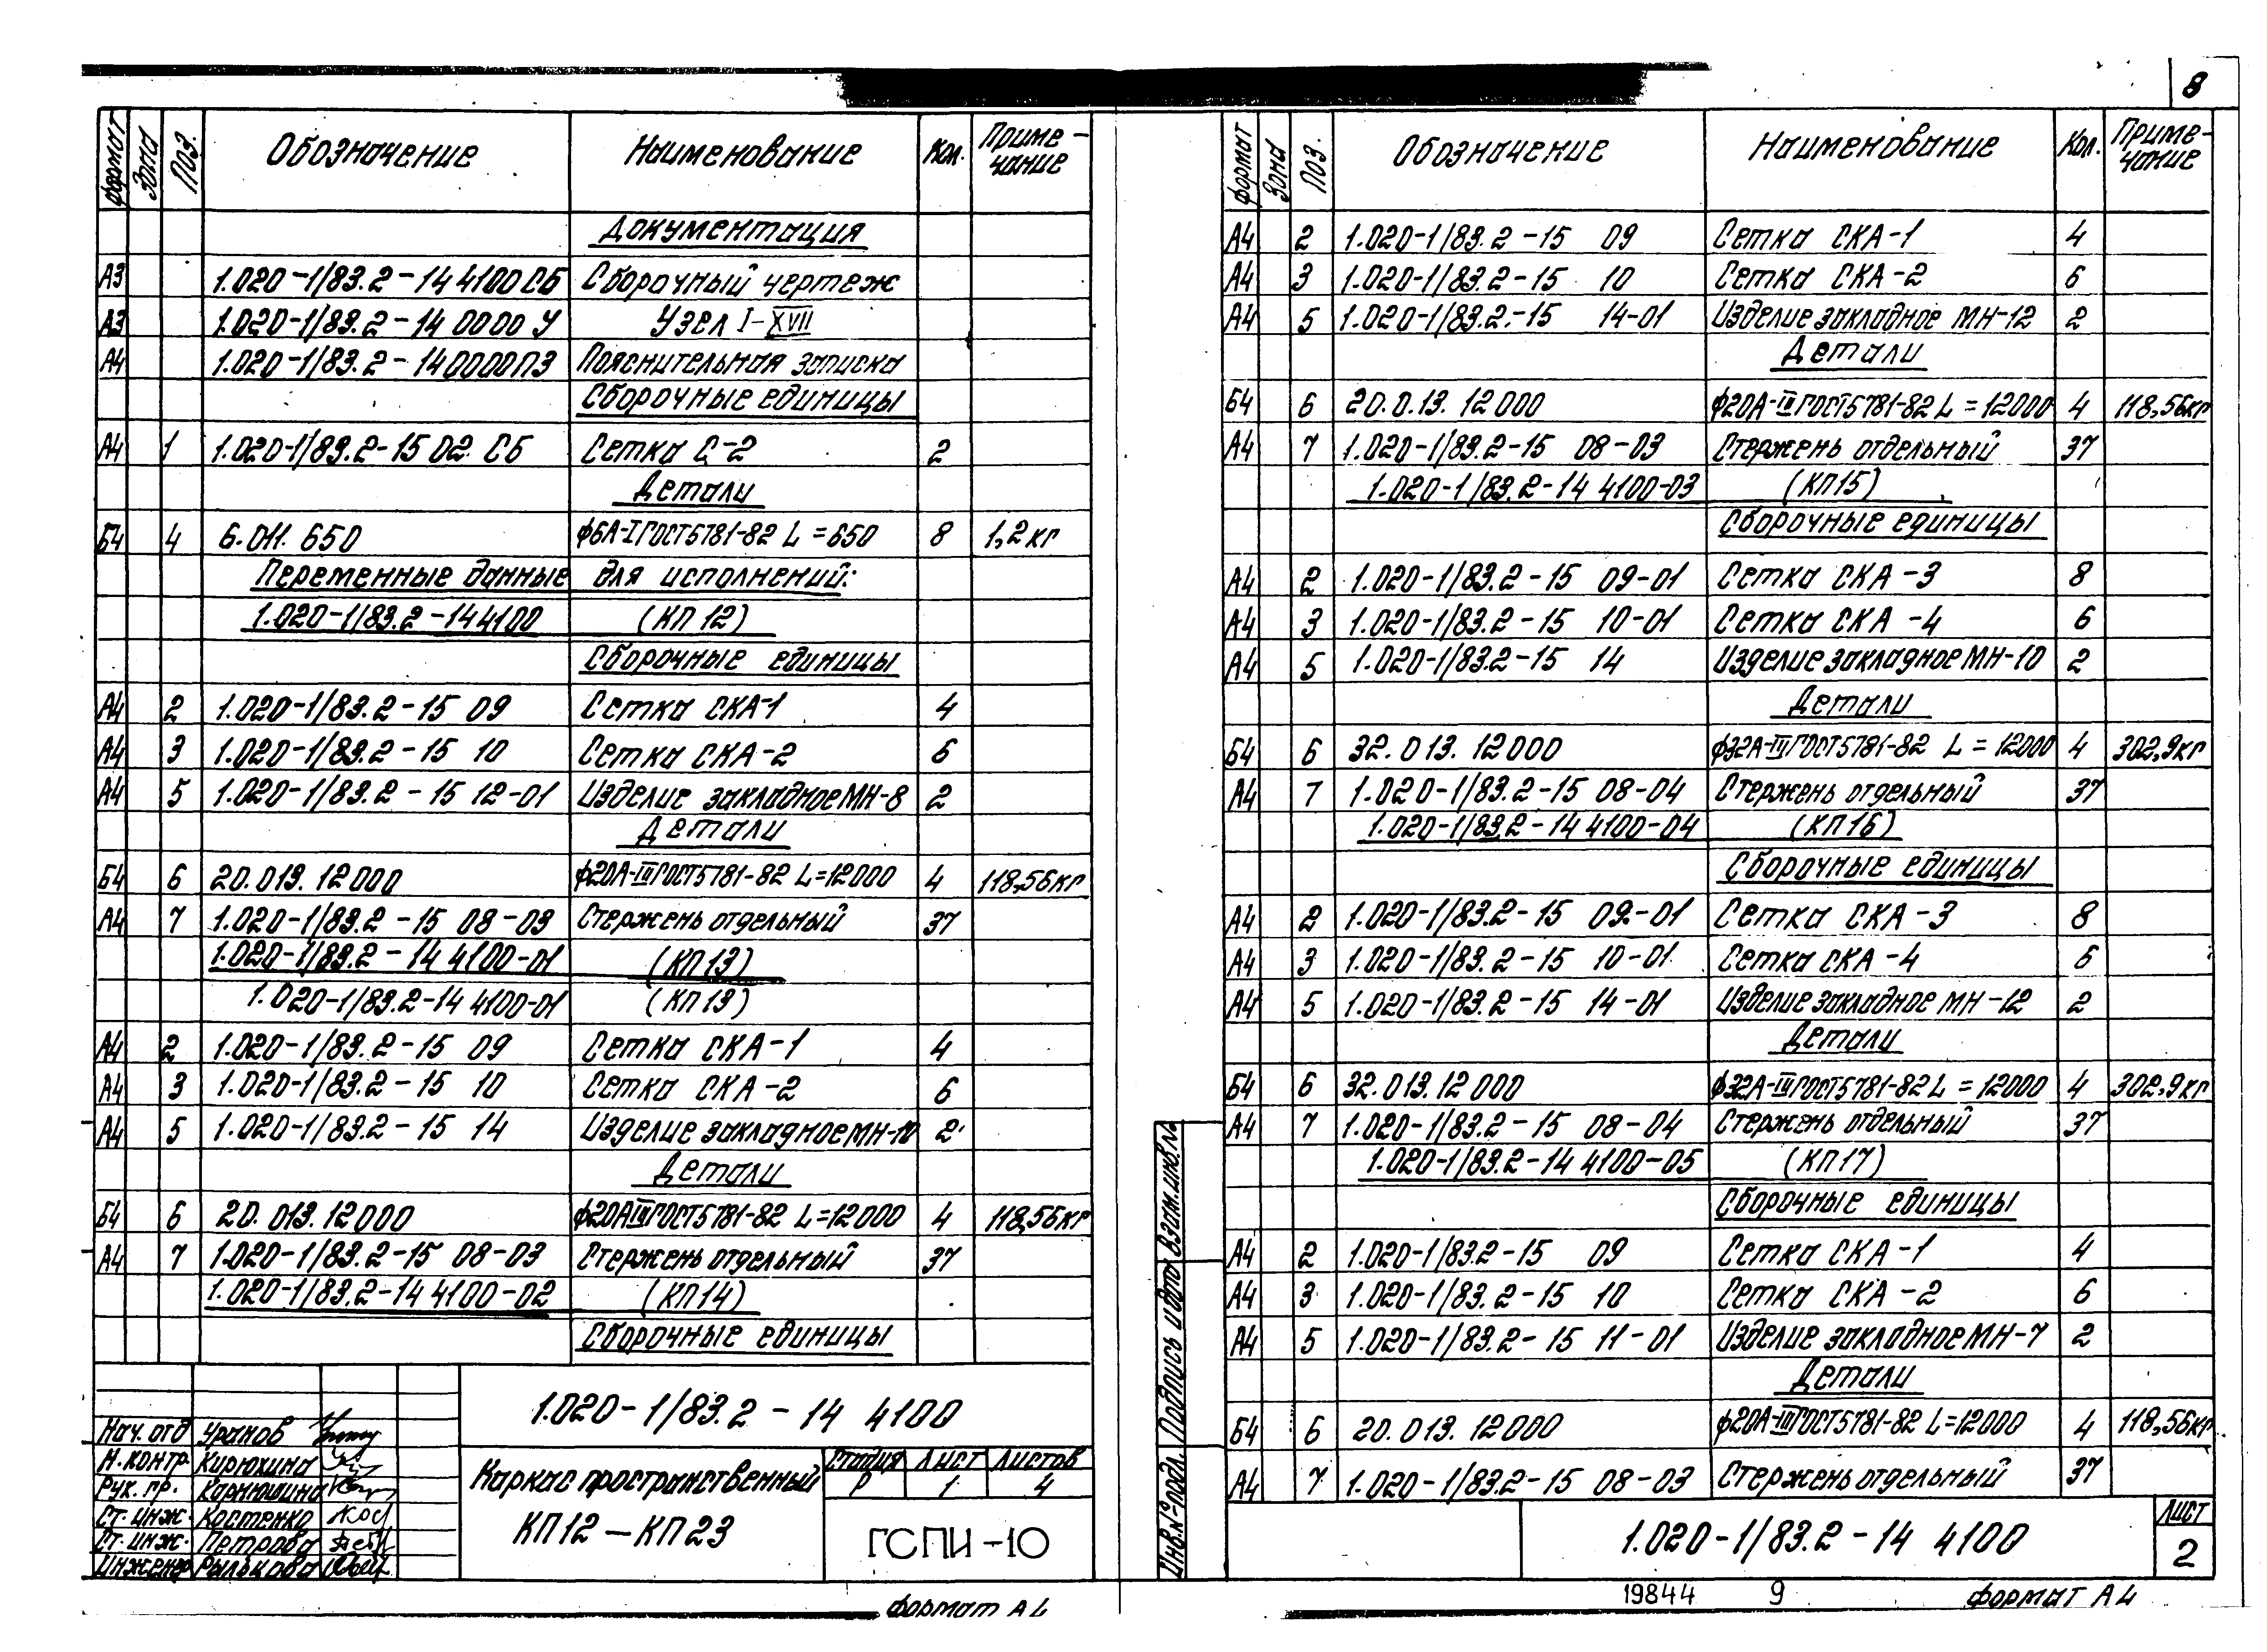 8
Формат Зона Поз. Обозначение Наименование Кол. Приме-
чание
Документация
А3 1.020-1/83.2-14 4100 СБ Сборочный чертеж
А3 1.020-1/83.2-14 0000 У Узел I-XVII
А4 1.020-1/83.2-14 0000ПЗ Пояснительная записка
Сборочные единицы
А4 1 1.020-1/83.2-15 02. СБ Сетка С-2 2
Детали
Б4 4 6.011.650 ф6А-I ГОСТ5781-82 L=650 8 1,2кг
Переменные данные для исполнений:
1.020-1/83.2-14 4100 (КП 12)
Сборочные единицы
А4 2 1.020-1/83.2-15 09 Сетка СКА-1 4
А4 3 1.020-1/83.2-15 10 Сетка СКА-2 6
А4 5 1.020-1/83.2-15 12-01 Изделие закладное МН-8 2
Детали
Б4 6 20.013.12000 ф20А-III ГОСТ5781-82 L=12000 4 118,56кг
А4 7 1.020-1/83.2-15 08-03 Стержень отдельный 37
1.020-1/83.2-14 4100-01 (КП13)
1.020-1/83.2-14 4100-01 (КП13)
А4 2 1.020-1/83.2-15 09 Сетка СКА-1 4
А4 3 1.020-1/83.2-15 10 Сетка СКА-2 6
А4 5 1.020-1/83.2-15 14 Изделие закладное МН-10 2
Детали
Б4 6 20.013.12000 ф20АIII ГОСТ5781-82 L=12000 4 118,56кг
А4 7 1.020-1/83.2-15 08-03 Стержень отдельный 37
1.020-1/83.2-14 4100-02 (КП14)
Сборочные единицы
1.020-1/83.2-14 4100
Нач.отд Уранов
Н.контр. Кирюхина
Рук.пр. Карнюшина
Ст.инж. Костенко
Ст.инж. Петрова
Инженер Рылькова
Каркас пространственный
КП12-КП23
Стадия Лист Листов
Р 1 4
ГСПИ-10
Формат А4
Формат Зона Поз. Обозначение Наименование Кол. Приме-
чание
А4 2 1.020-1/83.2-15 09 Сетка СКА-1 4
А4 3 1.020-1/83.2-15 10 Сетка СКА-2 6
А4 5 1.020-1/83.2-15 14-01 Изделие закладное МН-12 2
Детали
Б4 6 20.0.13.12000 ф20А-III ГОСТ5781-82 L=12000 4 118,56кг
А4 7 1.020-1/83.2-15 08-03 Стержень отдельный 37
1.020-1/83.2-14 4100-03 (КП15)
Сборочные единицы
А4 2 1.020-1/83.2-15 09-01 Сетка СКА-3 8
А4 3 1.020-1/83.2-15 10-01 Сетка СКА-4 6
А4 5 1.020-1/83.2-15 14 Изделие закладное МН-10 2
Детали
Б4 6 32.013.12000 ф32А-III ГОСТ5781-82 L=12000 4 302,9кг
А4 7 1.020-1/83.2-15 08-04 Стержень отдельный 37
1.020-1/83.2-14 4100-04 (КП16)
Сборочные единицы
А4 2 1.020-1/83.2-15 09-01 Сетка СКА-3 8
А4 3 1.020-1/83.2-15 10-01 Сетка СКА-4 6
А4 5 1.020-1/83.2-15 14-01 Изделие закладное МН-12 2
Детали
Б4 6 32.013.12000 ф32А-III ГОСТ5781-82 L=12000 4 302,9кг
А4 7 1.020-1/83.2-15 08-04 Стержень отдельный 37
1.020-1/83.2-14 4100-05 (КП17)
Сборочные единицы
А4 2 1.020-1/83.2-15 09 Сетка СКА-1 4
А4 3 1.020-1/83.2-15 10 Сетка СКА-2 6
А4 5 1.020-1/83.2-15 11-01 Изделие закладное МН-7 2
Детали
Б4 6 20.013.12000 ф20А-III ГОСТ5781-82 L=12000 4 118,56кг
А4 7 1.020-1/83.2-15 08-03 Стержень отдельный 37
Инв.№подл. Подпись и дата Взам.инв.№
1.020-1/83.2-14 4100
Лист
2
19844 9 Формат А4